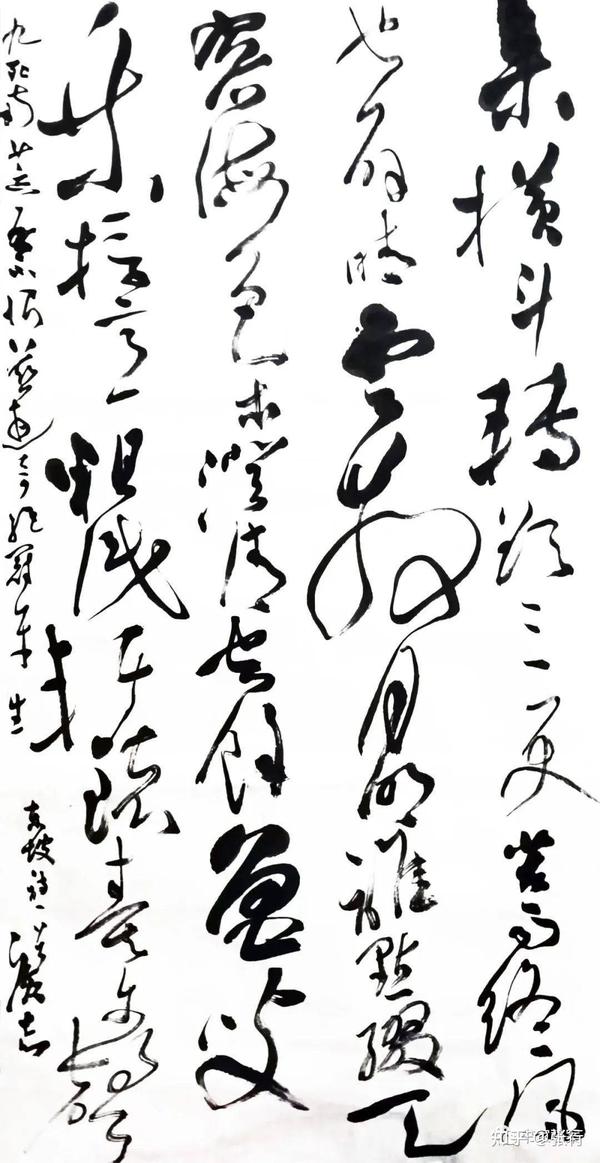 參橫斗轉欲三更苦雨終風
也解晴雲散月明誰點綴天
容海色本澄清空餘魯叟
乘桴意粗識軒轅奏樂聲
九死南荒吾不恨茲遊奇絕冠平生
東坡詩
知乎 @张行